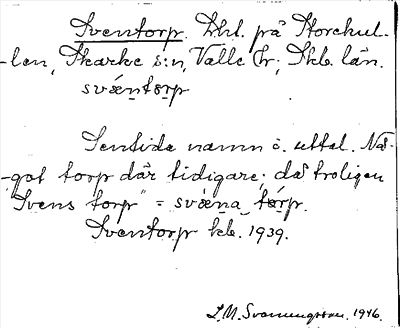 Sventorp. Lht. på Storekul-
len, Skarke s:n, Valle hr; Skb. län.
svæ̀ntɔrp
Sentida namn o. uttal. Nå-
got torp där tidigare; då troligen
"Svens torp" = svæ̀na tɔ́rp.
Sventorp kb. 1939.
L.M. Svanungsson. 1946.